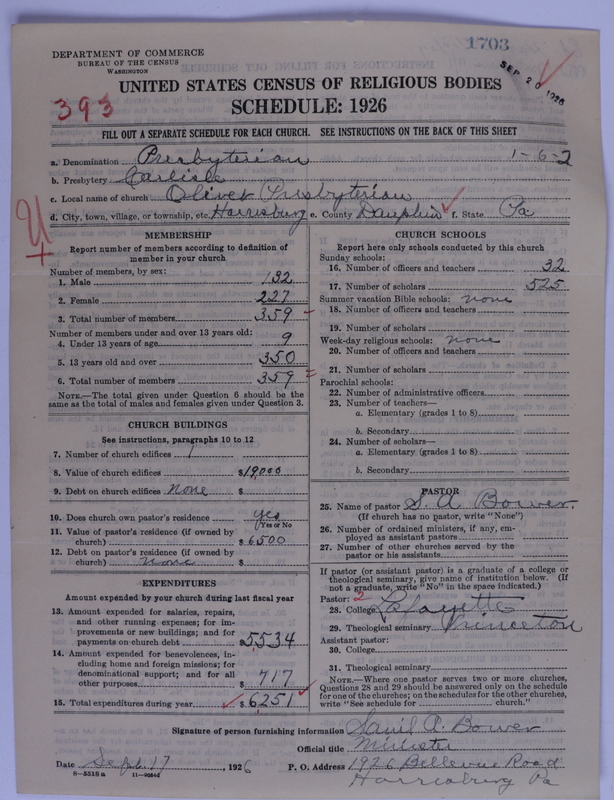 1703
DEPARTMENT OF COMMERCE
BUREAU OF THE CENSUS
WASHINGTON
SEP 20 1926
UNITED STATES CENSUS OF RELIGIOUS BODIES
393
SCHEDULE: 1926
FILL OUT A SEPARATE SCHEDULE FOR EACH CHURCH. SEE INSTRUCTIONS ON THE BACK OF THIS SHEET
a. Denomination Presbyterian 1-6-2
b. Presbytery Carlisle
c. Local name of church Olivet Presbyterian
d. City, town, village, or township, etc. Harrisburg e. County Dauphin f. State Pa
MEMBERSHIP
Report number of members according to definition of
member in your church.
Number of members, by sex:
1. Male 132
2. Female 227
3. Total number of members 359
Number of members under and over 13 years old:
4. Under 13 years of age 9
5. 13 years old and over 350
6. Total number of members 359
NOTE.—The total given under Question 6 should be
same as the total of males and females given under Question 3.
CHURCH BUILDINGS
See instructions, paragraphs 10 to 12
7. Number of church edifices 1
8. Value of church edifices $19,000
9. Debt on church edifices none $
10. Does church own pastor's residence yes
(Yes or No)
11. Value of pastor's residence (if owned by
church) $6500
12. Debt on pastor's residence (if owned by
church) none $
EXPENDITURES
Amount expended by your church during last fiscal year
13. Amount expended for salaries, repairs,
and other running expenses; for im-
provements or new buildings; and for
payments on church debt $5,534
14. Amount expended for benevolences, in-
cluding home and foreign missions; for
denominational support; and for all
other purposes $717
15. Total expenditures during year $6,251
CHURCH SCHOOLS
Report here only schools conducted by this church
Sunday schools:
16. Number of officers and teachers 32
17. Number of scholars 525
Summer vacation Bible schools: none
18. Number of officers and teachers
19. Number of scholars
Week-day religious schools: none
20. Number of officers and teachers
21. Number of scholars
Parochial schools:
22. Number of administrative officers
23. Number of teachers—
a. Elementary (grades 1 to 8)
b. Secondary
24. Number of scholars—
a. Elementary (grades 1 to 8)
b. Secondary
PASTOR
25. Name of pastor S. A. Bower.
(If church has no pastor, write "None")
26. Number of ordained ministers, if any, em-
ployed as assistant pastors
27. Number of other churches served by the
pastor or his assistants
If pastor (or assistant pastor) is a graduate of a college or
theological seminary, give name of institution below. (If
not a graduate, write "No" in the space indicated.)
Pastor: 2
28. College Lafayette
29. Theological seminary Princeton
Assistant pastor:
30. College
31. Theological seminary
NOTE.—Where one pastor serves two or more churches,
Questions 28 and 29 should be answered only on the schedule
for one of the churches; on the schedules for the other churches,
write "See schedule for church."
Signature of person furnishing information Saml A. Bower
Official title Minister
Date Sept. 17, 1926 P. O. Address 1926 Bellevue Road
8-5518 a Harrisburg Pa